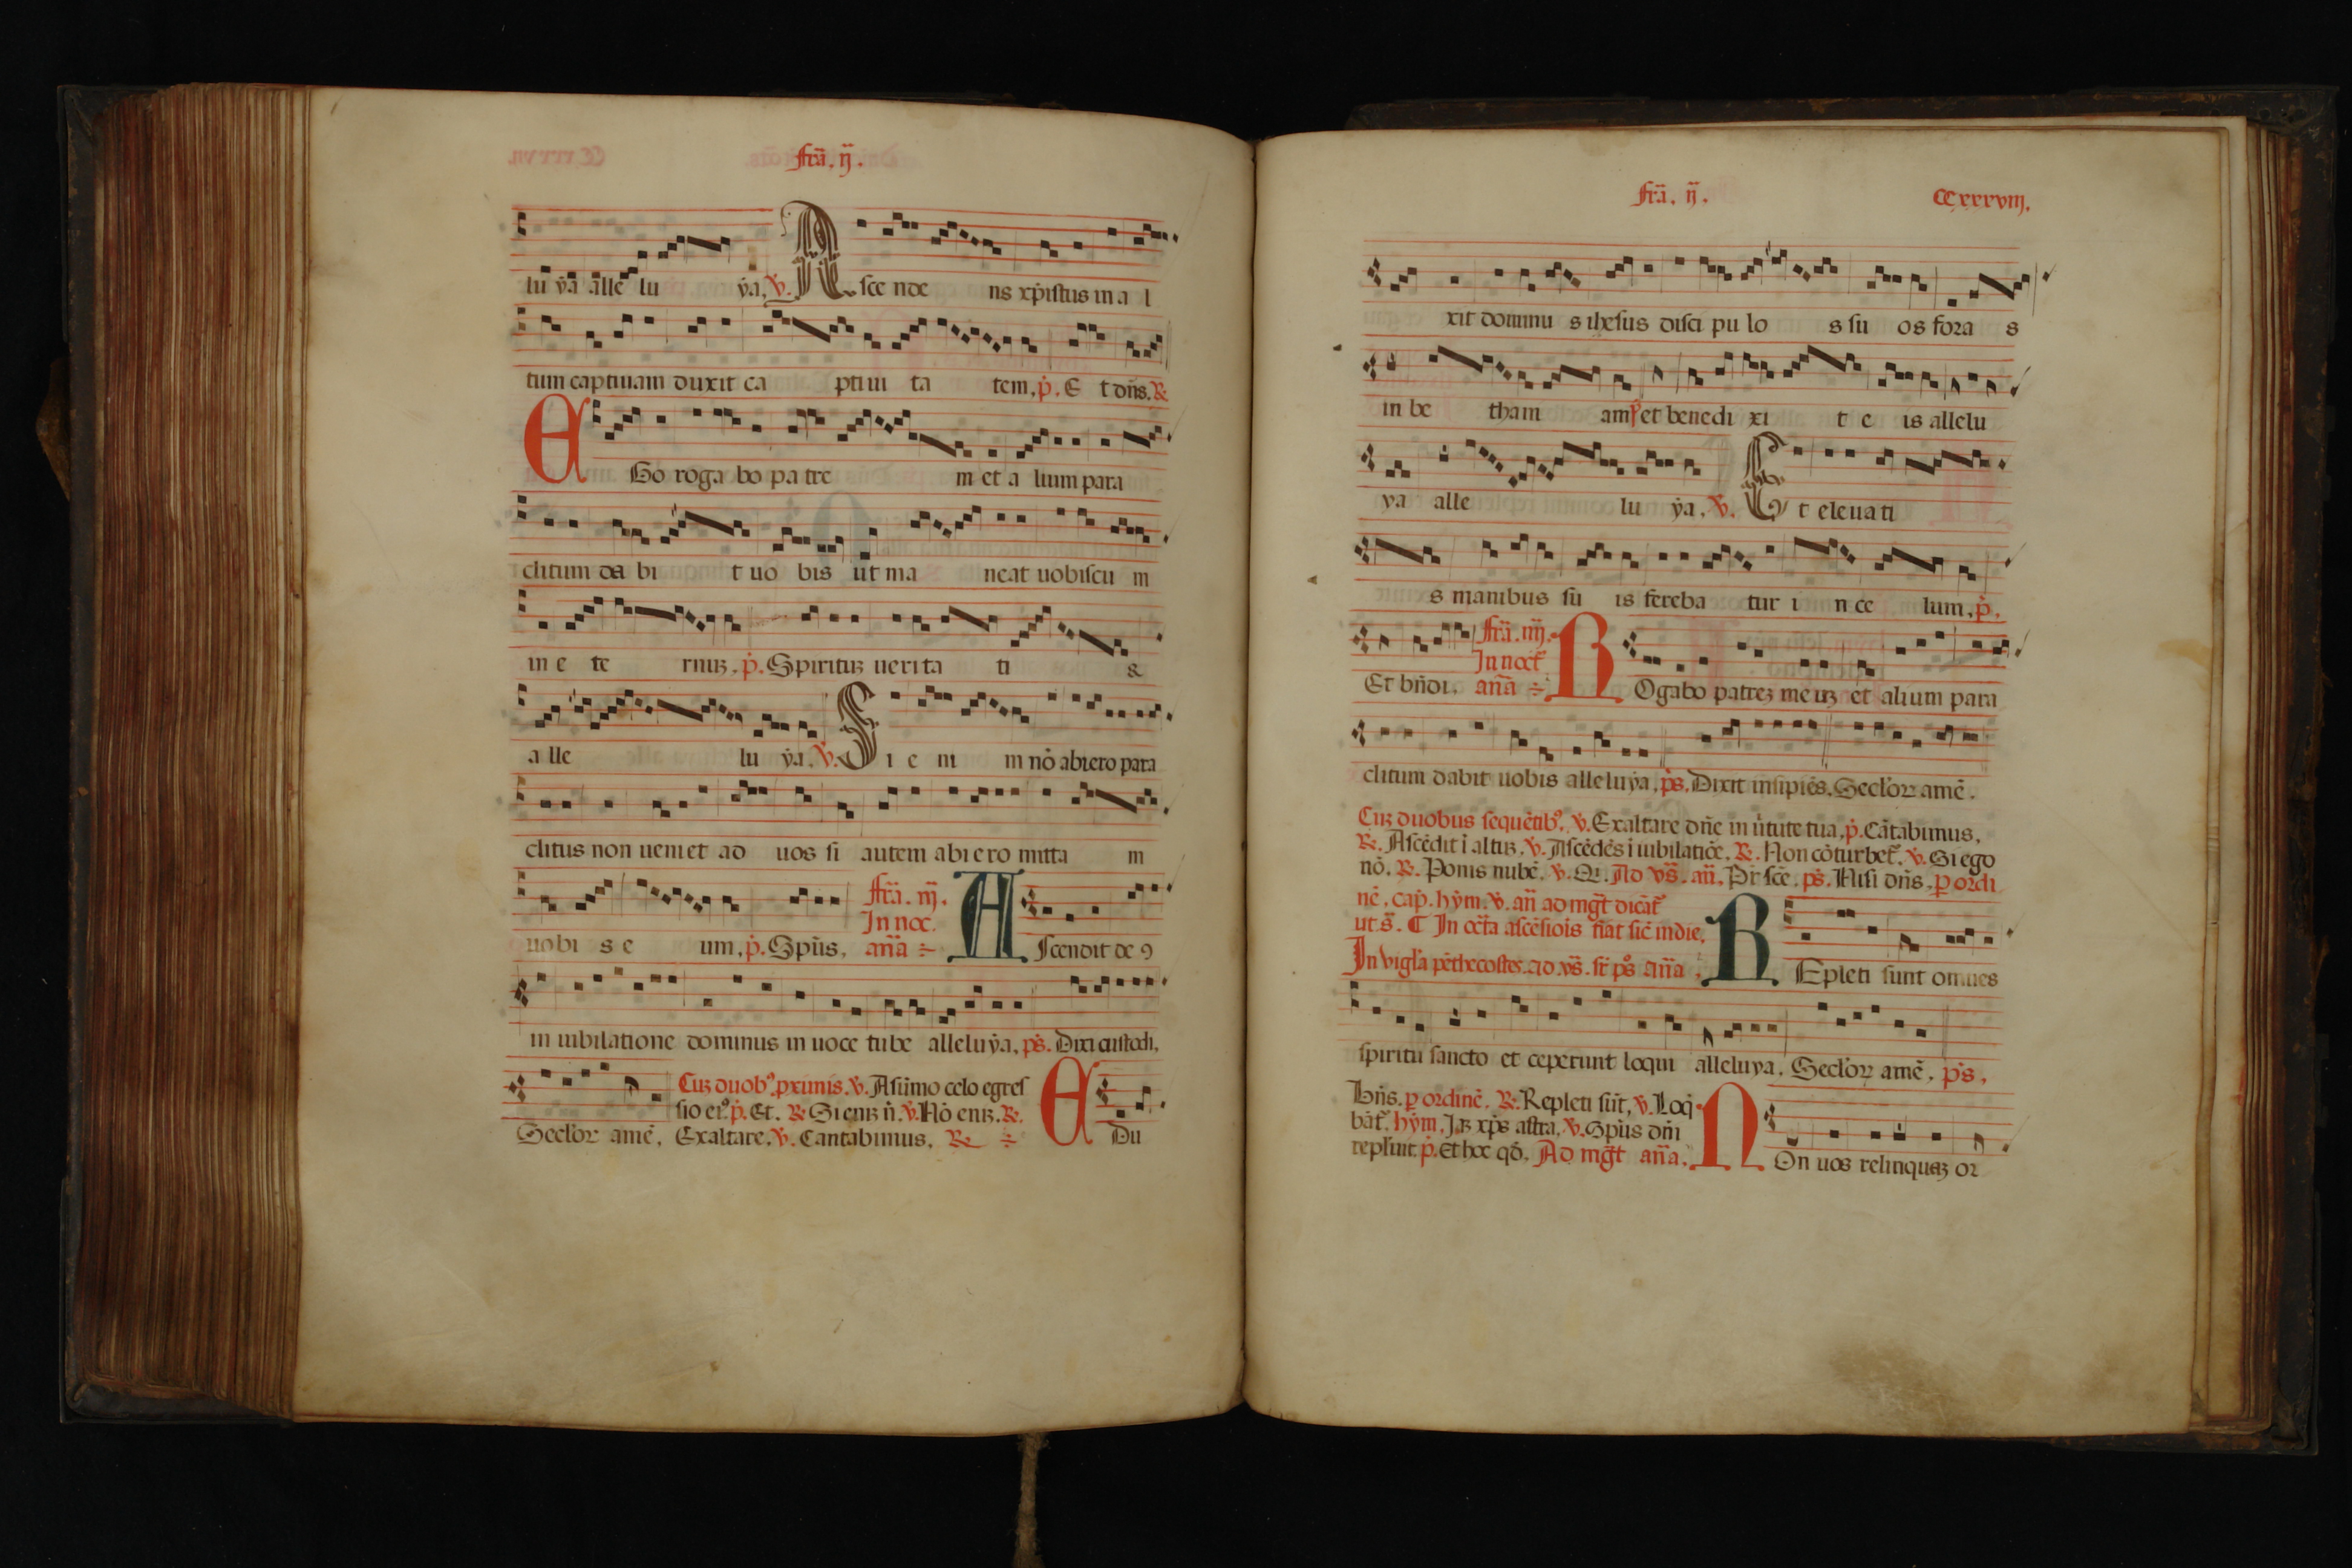 fr̃a. ij.
lu ẏa alle lu ẏa. ℣. A sce nde ns xp̃istus in a l
tum captiuam duxit ca ptiui ta tem. p̃. E t dñs. ℟
E Go roga bo pa tre m et a lium para
clitum da bi t uo bis ut ma neat uobiscu m
in e te rnuꝫ. p̃. Spirituꝫ uerita ti s
a lle lu ẏa. ℣. S i e ni m nõ abiero para
clitus non ueniet ad uos si autem abiero mitta m
uobi s e um. p̃. Spũs. fr̃a. iij. In noc. añа ÷ A scendit de9
in iubilatione dominus in uoce tube alleluẏa. ps̃. Dixi custodi.
Cuꝫ duob9. pximis. ℣. A sũmo celo egres
sio ei9. p̃. Et. ℟. Si eniꝫ ñ. ℣. Nõ eniꝫ. ℟.
Seclor̃ amẽ. Exaltare. ℣. Cantabimus. ℟ ÷ E Du
fr̃a. ij. CCxxxviij.
xit dominu s ihesus disci pu lo s su os fora s
in be tham am et benedi xi t e is allelu
ya alle lu ẏa. ℣. E t eleuati
s manibus su is fereba tur i n ce lum. p̃.
Et bñdi. fr̃a. iiij. In noct̃ añа ÷ R Ogabo patreꝫ meuꝫ et alium para
clitum dabit uobis alleluẏa. ps̃. Dixit insipiẽs. Seclor̃ amẽ.
Cuꝫ duobus sequẽtib9. ℣. Exaltare dñe in ũtute tua. p̃. Cãtabimus.
℟. Ascẽdit ĩ altuꝫ. ℣. Ascẽdẽs ĩ iubilatiõe. ℟. Non cõturbet̃. ℣. Si ego
nõ. ℟. Ponis nubẽ. ℣. Q̃. Ad vs̃. añ. Pr̃ sce. ps̃. Nisi dñs. ꝑ ordi
nẽ. cap̃. hẏm. ℣. añ ad mg̃t dicãt̃
ut s̃. ¶ In oct̃a ascẽsiõis fiat sic̃ in die.
In vigl̃a pẽthecostes. ad vs̃. sr̃ ps̃ añа. R Epleti sunt omnes
spiritu sancto et ceperunt loqui alleluya. Seclor̃ amẽ. ps̃.
Bñs. ꝑ ordinẽ. ℟. Repleti sũt. ℣. Loq̃
bãt̃. hẏm. Jaꝫ xp̃s astra. ℣. Spũs dñi
repleuit. p̃. Et hoc qd̃. Ad mg̃t añа. N On uos relinquaꝫ or